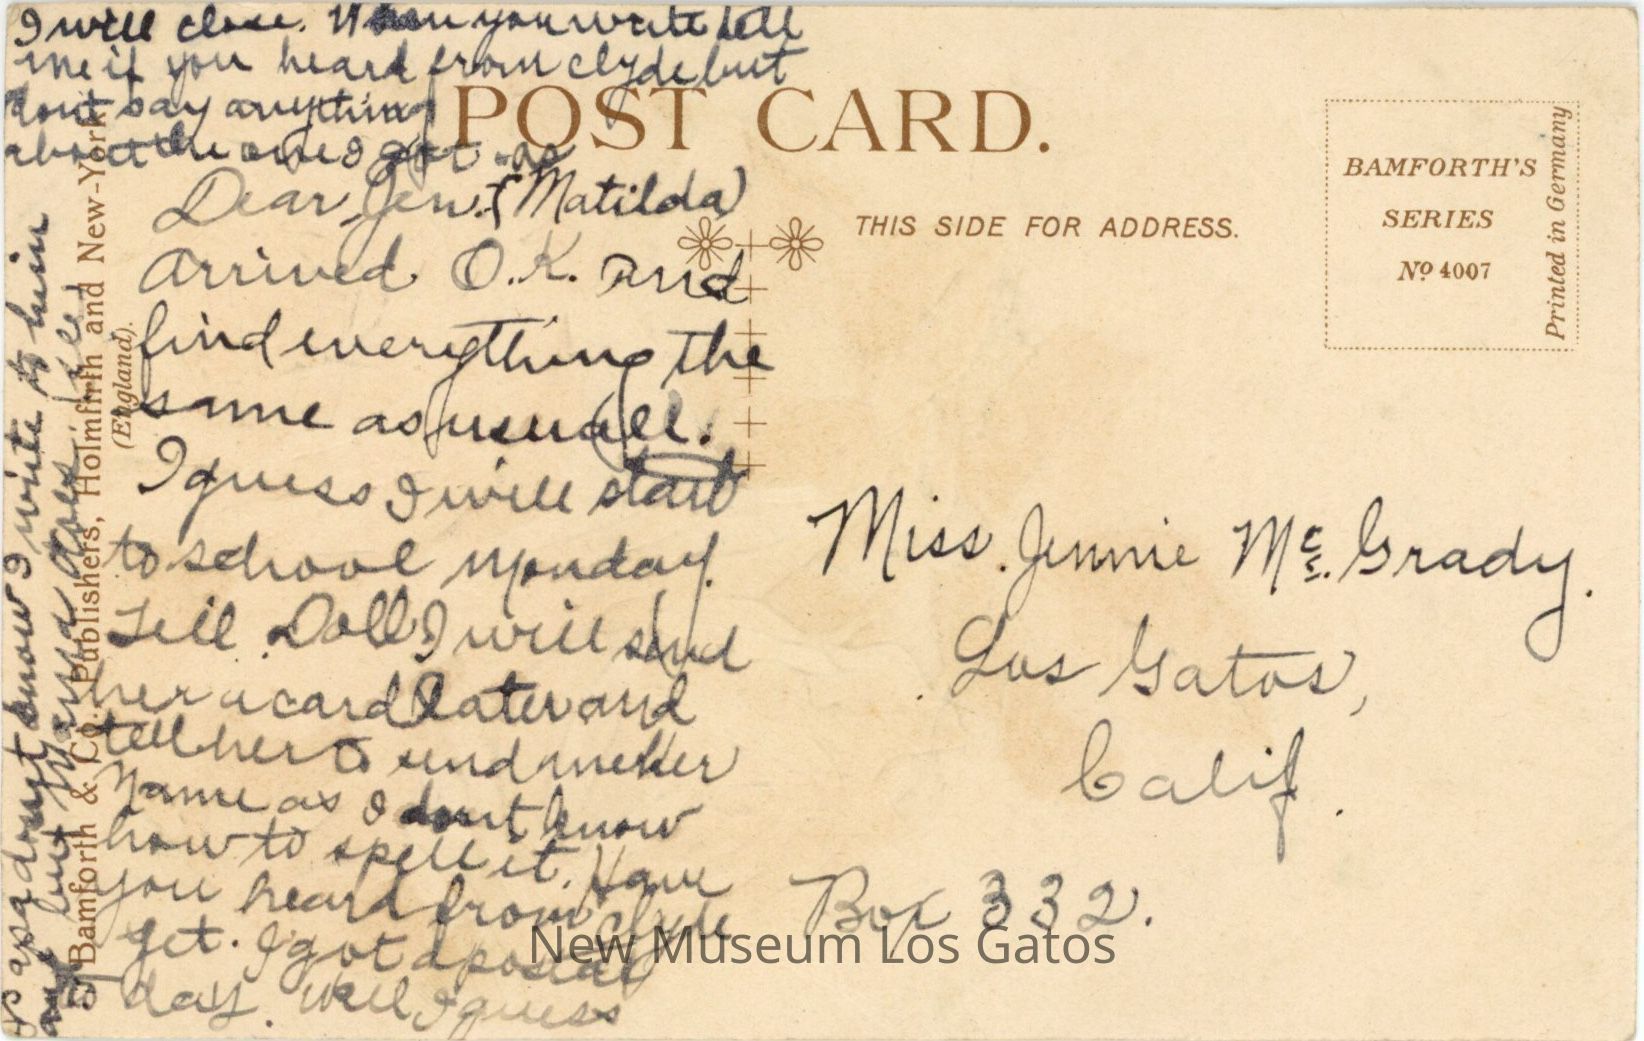 POST CARD.
THIS SIDE FOR ADDRESS.
BAMFORTH'S
SERIES
Nº 4007
Printed in Germany
Bamforth & Co. Publishers, Holmfirth and New-York
(England).
Dear Jen. (Matilda)
Arrived O.K. and
find everything the
same as usuall.
I guess I will start
to school Monday.
Tell Doll I will send
her a card later and
tell her to send me her
name as I dont know
how to spell it. Have
you heard from Clyde
yet. I got a postal
day. Well I guess
I will close. When you write tell
me if you heard from Clyde but
dont say anything
about the one I got as
dont know I write to him
but
Miss. Jennie Mc. Grady.
Los Gatos,
Calif.
Box 332.
New Museum Los Gatos